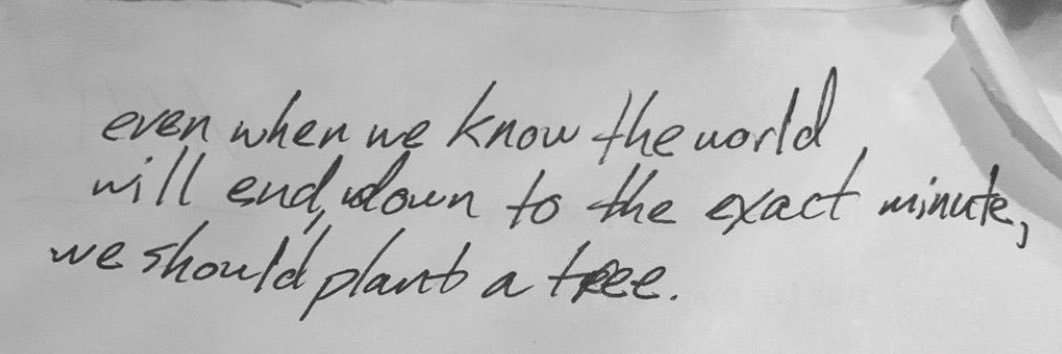 even when we know the world
will end, down to the exact minute,
we should plant a tree.